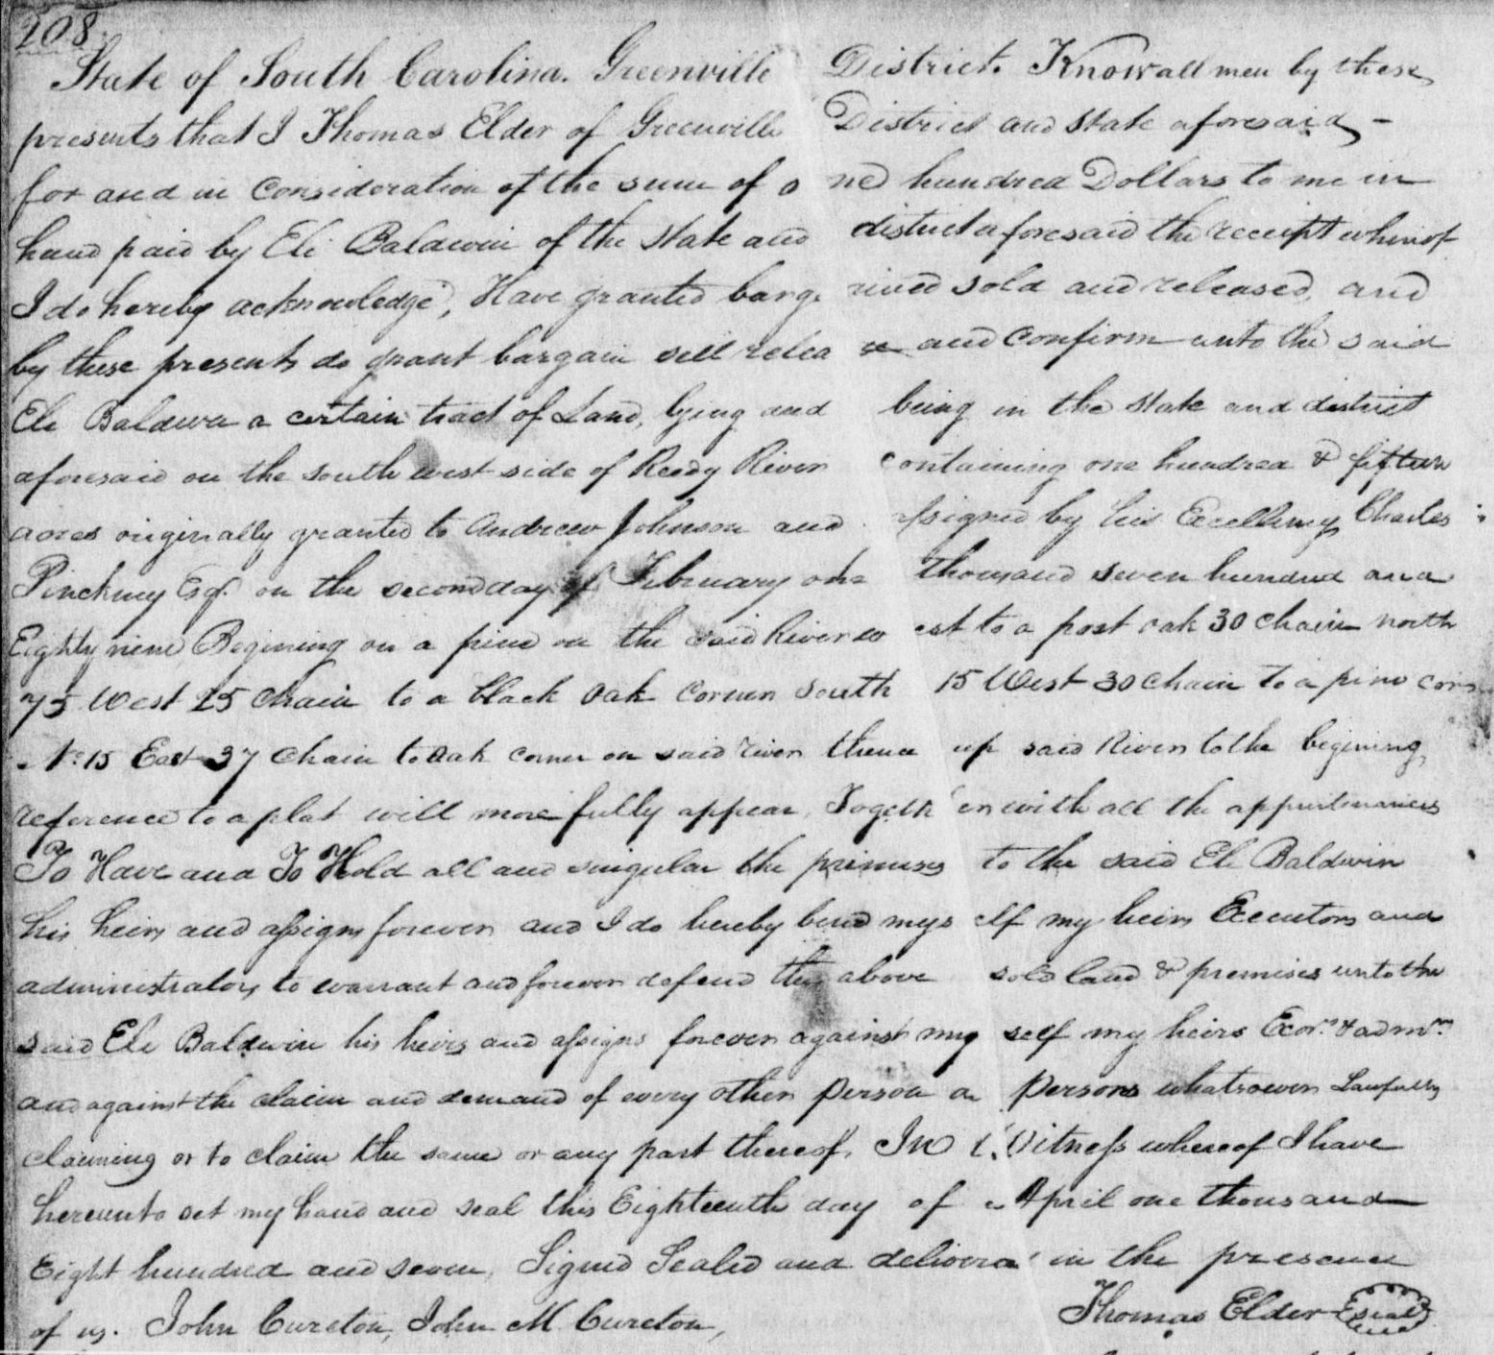 208.
State of South Carolina. Greenville District. Know all men by these
presents that I Thomas Elder of Greenville District and State aforesaid -
for and in Consideration of the sum of one hundred Dollars to me in
hand paid by Eli Baldwin of the State and district aforesaid the receipt whereof
I do hereby acknowledge, Have granted bargained sold and released, and
by these presents do grant bargain sell release and Confirm unto the said
Eli Baldwin a certain tract of Land, lying and being in the State and district
aforesaid on the south west side of Reedy River containing one hundred & fifteen
acres originally granted to Andrew Johnson and assigned by his Excellency Charles
Pinckney Esqr. on the second day of February one thousand seven hundred and
Eighty nine Begining on a pine on the said River west to a post oak 30 Chain north
75 West 25 Chain to a black oak Cornen South 15 West 30 Chain to a pine corn
No. 15 East 37 Chain to oak corner on said river thence up said River to the begining,
reference to a plat will more fully appear, Together with all the appurtenances
To Have and To Hold all and singular the primises to the said Eli Baldwin
his heirs and assigns forever and I do hereby bind myself my heirs Executors and
administrators to warrant and forever defend the above sold land & premises unto the
said Eli Baldwin his heirs and assigns forever against my self my heirs Exors. & admrs.
and against the claim and demand of every other person or persons whatsoever Lawfully
claiming or to claim the same or any part thereof. In Witness whereof I have
hereunto set my hand and seal this Eighteenth day of April one thousand
Eight hundred and seven, Signed Sealed and delivered in the presence
of us. John Cureton, John M Cureton, Thomas Elder seal